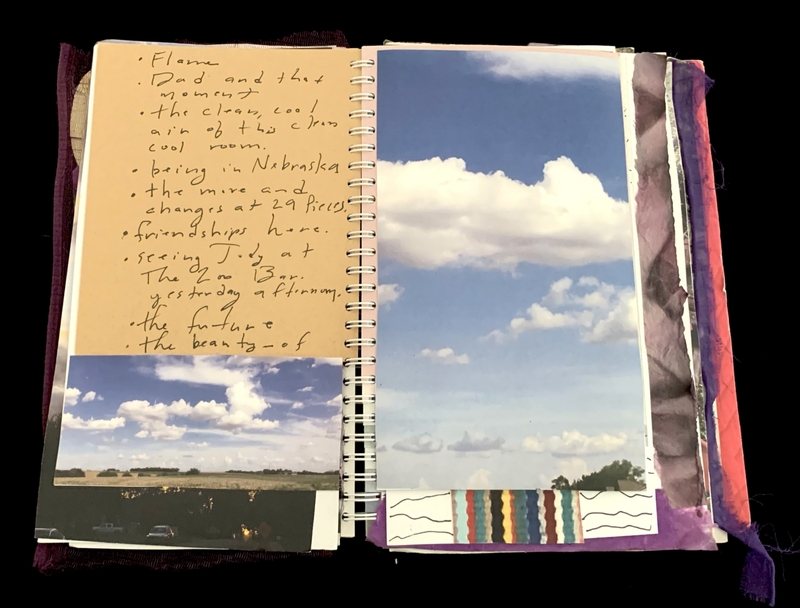 • Flame
• Dad and that
moment
• the clean, cool
air of this clean
cool room.
• being in Nebraska
• the move and
changes at 29 Pieces.
• friendships here.
• seeing Jody at
The Zoo Bar.
yesterday afternoon.
• the future
• the beauty of